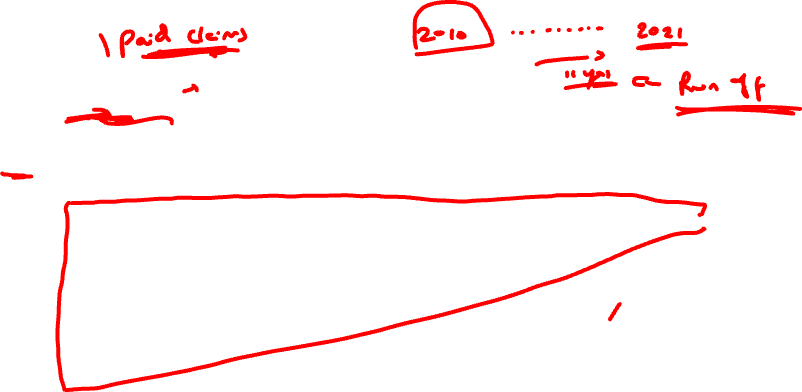 Paid claims
2010 ........ 2021
11 yrs Run off